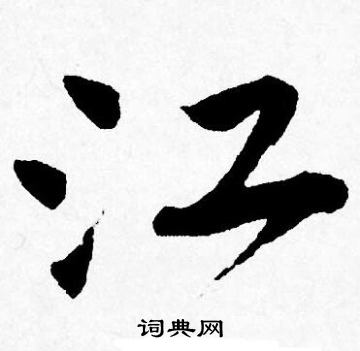 江
词典网